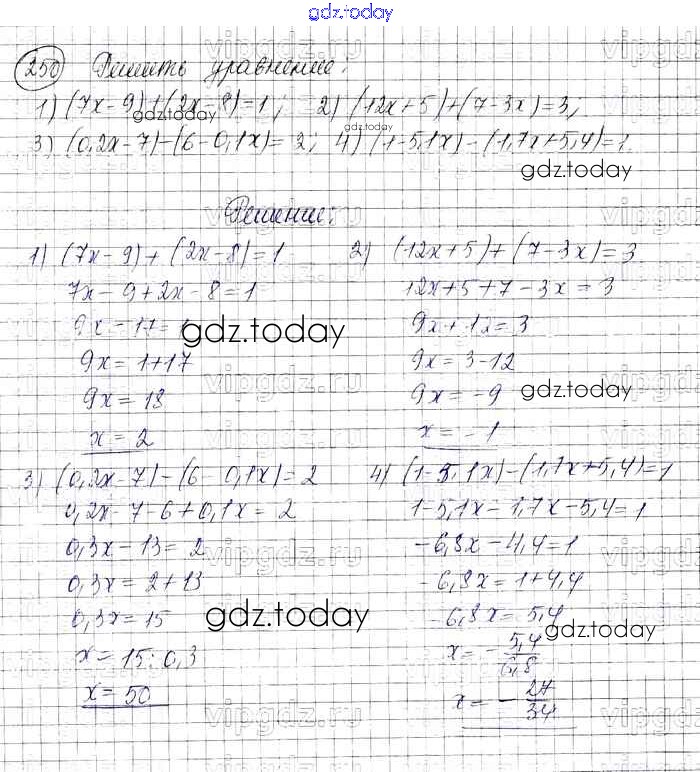 gdz.today
250 Решить уравнение:
1) (7x-9)+(2x-8)=1; 2) (12x+5)+(7-3x)=3;
3) (0,2x-7)-(6-0,1x)=2; 4) (1-5,1x)-(1,7x+5,4)=1.
Решение:
1) (7x-9)+(2x-8)=1
7x-9+2x-8=1
9x-17=1
9x=1+17
9x=18
x=2
2) (12x+5)+(7-3x)=3
12x+5+7-3x=3
9x+12=3
9x=3-12
9x=-9
x=-1
3) (0,2x-7)-(6-0,1x)=2
0,2x-7-6+0,1x=2
0,3x-13=2
0,3x=2+13
0,3x=15
x=15:0,3
x=50
4) (1-5,1x)-(1,7x+5,4)=1
1-5,1x-1,7x-5,4=1
-6,8x-4,4=1
-6,8x=1+4,4
-6,8x=5,4
x=-5,4/6,8
x=-27/34
gdz.today
gdz.today
gdz.today
gdz.today
gdz.today
gdz.today
gdz.today
vipgdz.ru